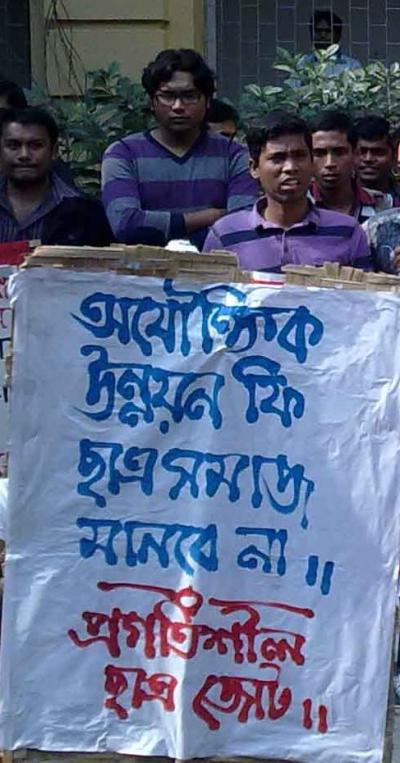 অযৌক্তিক
উন্নয়ন ফি
ছাত্র সমাজ
মানবে না ৷৷
প্রগতিশীল
ছাত্র জোট ৷৷